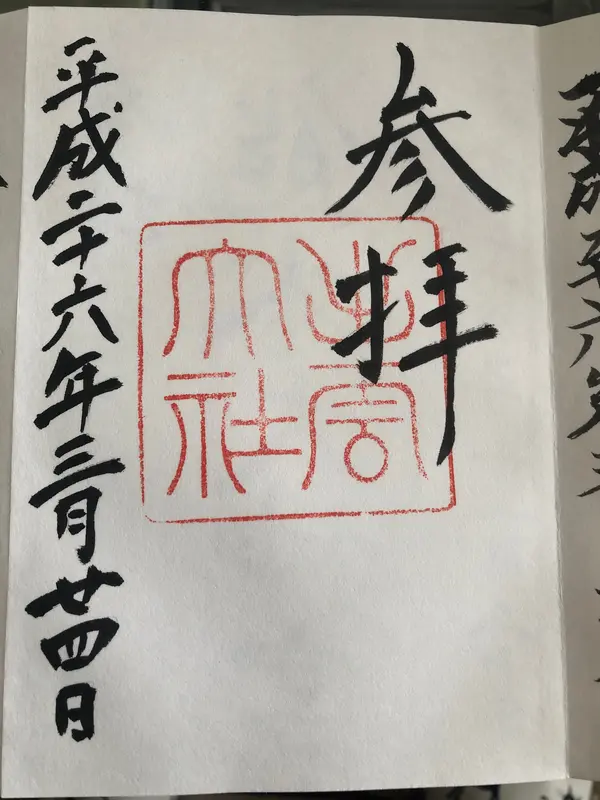 参拝
出雲
大社
平成二十六年三月廿四日